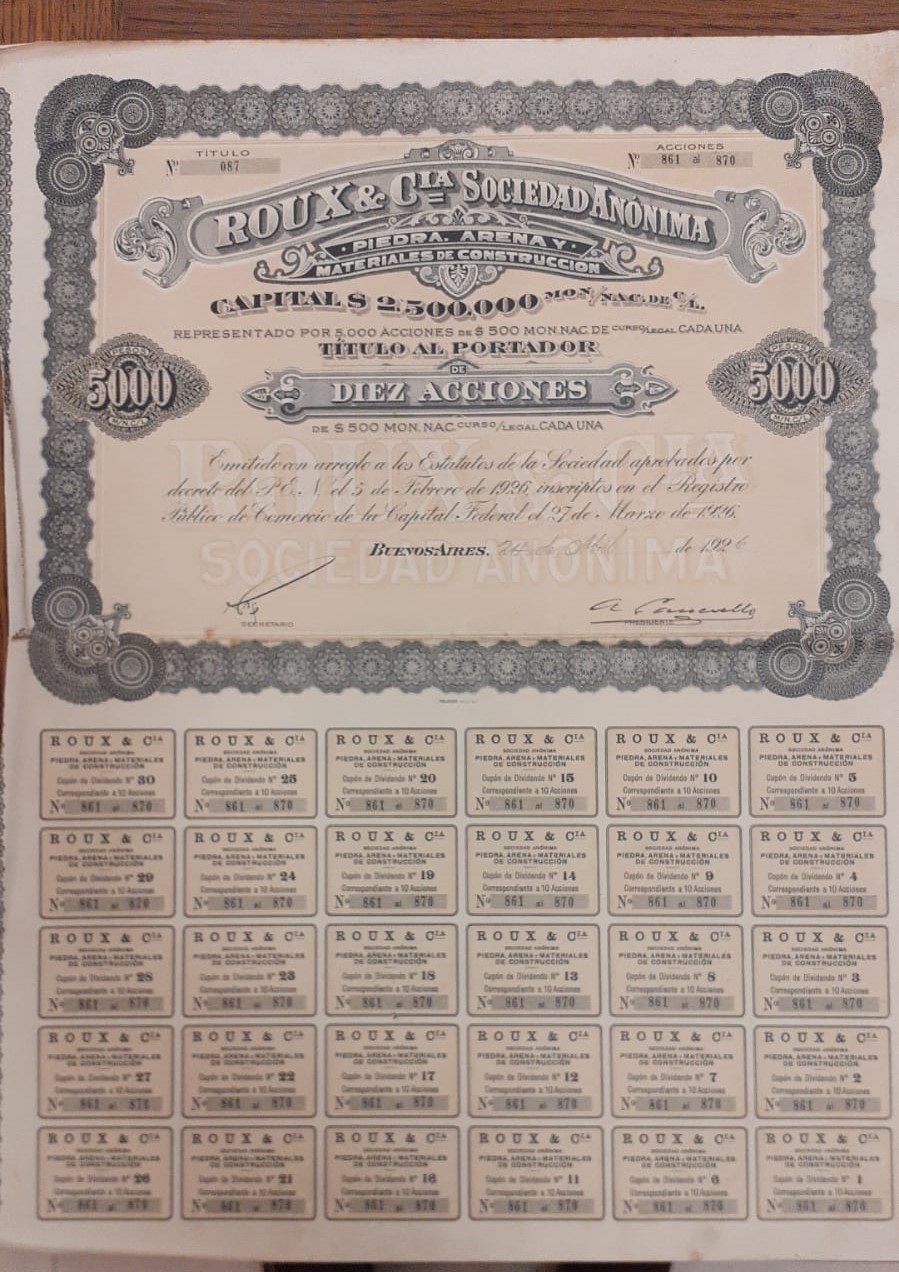 TÍTULO
Nº 087
ACCIONES
Nº 861 al 870
ROUX & CIA SOCIEDAD ANÓNIMA
PIEDRA, ARENA Y
MATERIALES DE CONSTRUCCIÓN
CAPITAL $ 2.500.000 MON/NAC. DE C/L.
REPRESENTADO POR 5.000 ACCIONES DE $ 500 MON. NAC. DE CURSO/LEGAL CADA UNA
TÍTULO AL PORTADOR
DE
DIEZ ACCIONES
DE $ 500 MON. NAC. CURSO/LEGAL CADA UNA
PESOS
5000
M/N. C/L.
PESOS
5000
M/N. C/L.
ROUX & CIA
SOCIEDAD ANÓNIMA
Emitido con arreglo a los Estatutos de la Sociedad aprobados por
decreto del P. E. N. el 5 de Febrero de 1926, inscriptos en el Registro
Público de Comercio de la Capital Federal el 27 de Marzo de 1926.
BUENOS AIRES, 24 de Abril de 1926
SECRETARIO
PRESIDENTE
ROUX & CIA
SOCIEDAD ANÓNIMA
PIEDRA, ARENA Y MATERIALES
DE CONSTRUCCIÓN
Cupón de Dividendo Nº 30
Correspondiente a 10 Acciones
Nº 861 al 870
ROUX & CIA
SOCIEDAD ANÓNIMA
PIEDRA, ARENA Y MATERIALES
DE CONSTRUCCIÓN
Cupón de Dividendo Nº 25
Correspondiente a 10 Acciones
Nº 861 al 870
ROUX & CIA
SOCIEDAD ANÓNIMA
PIEDRA, ARENA Y MATERIALES
DE CONSTRUCCIÓN
Cupón de Dividendo Nº 20
Correspondiente a 10 Acciones
Nº 861 al 870
ROUX & CIA
SOCIEDAD ANÓNIMA
PIEDRA, ARENA Y MATERIALES
DE CONSTRUCCIÓN
Cupón de Dividendo Nº 15
Correspondiente a 10 Acciones
Nº 861 al 870
ROUX & CIA
SOCIEDAD ANÓNIMA
PIEDRA, ARENA Y MATERIALES
DE CONSTRUCCIÓN
Cupón de Dividendo Nº 10
Correspondiente a 10 Acciones
Nº 861 al 870
ROUX & CIA
SOCIEDAD ANÓNIMA
PIEDRA, ARENA Y MATERIALES
DE CONSTRUCCIÓN
Cupón de Dividendo Nº 5
Correspondiente a 10 Acciones
Nº 861 al 870
ROUX & CIA
SOCIEDAD ANÓNIMA
PIEDRA, ARENA Y MATERIALES
DE CONSTRUCCIÓN
Cupón de Dividendo Nº 29
Correspondiente a 10 Acciones
Nº 861 al 870
ROUX & CIA
SOCIEDAD ANÓNIMA
PIEDRA, ARENA Y MATERIALES
DE CONSTRUCCIÓN
Cupón de Dividendo Nº 24
Correspondiente a 10 Acciones
Nº 861 al 870
ROUX & CIA
SOCIEDAD ANÓNIMA
PIEDRA, ARENA Y MATERIALES
DE CONSTRUCCIÓN
Cupón de Dividendo Nº 19
Correspondiente a 10 Acciones
Nº 861 al 870
ROUX & CIA
SOCIEDAD ANÓNIMA
PIEDRA, ARENA Y MATERIALES
DE CONSTRUCCIÓN
Cupón de Dividendo Nº 14
Correspondiente a 10 Acciones
Nº 861 al 870
ROUX & CIA
SOCIEDAD ANÓNIMA
PIEDRA, ARENA Y MATERIALES
DE CONSTRUCCIÓN
Cupón de Dividendo Nº 9
Correspondiente a 10 Acciones
Nº 861 al 870
ROUX & CIA
SOCIEDAD ANÓNIMA
PIEDRA, ARENA Y MATERIALES
DE CONSTRUCCIÓN
Cupón de Dividendo Nº 4
Correspondiente a 10 Acciones
Nº 861 al 870
ROUX & CIA
SOCIEDAD ANÓNIMA
PIEDRA, ARENA Y MATERIALES
DE CONSTRUCCIÓN
Cupón de Dividendo Nº 28
Correspondiente a 10 Acciones
Nº 861 al 870
ROUX & CIA
SOCIEDAD ANÓNIMA
PIEDRA, ARENA Y MATERIALES
DE CONSTRUCCIÓN
Cupón de Dividendo Nº 23
Correspondiente a 10 Acciones
Nº 861 al 870
ROUX & CIA
SOCIEDAD ANÓNIMA
PIEDRA, ARENA Y MATERIALES
DE CONSTRUCCIÓN
Cupón de Dividendo Nº 18
Correspondiente a 10 Acciones
Nº 861 al 870
ROUX & CIA
SOCIEDAD ANÓNIMA
PIEDRA, ARENA Y MATERIALES
DE CONSTRUCCIÓN
Cupón de Dividendo Nº 13
Correspondiente a 10 Acciones
Nº 861 al 870
ROUX & CIA
SOCIEDAD ANÓNIMA
PIEDRA, ARENA Y MATERIALES
DE CONSTRUCCIÓN
Cupón de Dividendo Nº 8
Correspondiente a 10 Acciones
Nº 861 al 870
ROUX & CIA
SOCIEDAD ANÓNIMA
PIEDRA, ARENA Y MATERIALES
DE CONSTRUCCIÓN
Cupón de Dividendo Nº 3
Correspondiente a 10 Acciones
Nº 861 al 870
ROUX & CIA
SOCIEDAD ANÓNIMA
PIEDRA, ARENA Y MATERIALES
DE CONSTRUCCIÓN
Cupón de Dividendo Nº 27
Correspondiente a 10 Acciones
Nº 861 al 870
ROUX & CIA
SOCIEDAD ANÓNIMA
PIEDRA, ARENA Y MATERIALES
DE CONSTRUCCIÓN
Cupón de Dividendo Nº 22
Correspondiente a 10 Acciones
Nº 861 al 870
ROUX & CIA
SOCIEDAD ANÓNIMA
PIEDRA, ARENA Y MATERIALES
DE CONSTRUCCIÓN
Cupón de Dividendo Nº 17
Correspondiente a 10 Acciones
Nº 861 al 870
ROUX & CIA
SOCIEDAD ANÓNIMA
PIEDRA, ARENA Y MATERIALES
DE CONSTRUCCIÓN
Cupón de Dividendo Nº 12
Correspondiente a 10 Acciones
Nº 861 al 870
ROUX & CIA
SOCIEDAD ANÓNIMA
PIEDRA, ARENA Y MATERIALES
DE CONSTRUCCIÓN
Cupón de Dividendo Nº 7
Correspondiente a 10 Acciones
Nº 861 al 870
ROUX & CIA
SOCIEDAD ANÓNIMA
PIEDRA, ARENA Y MATERIALES
DE CONSTRUCCIÓN
Cupón de Dividendo Nº 2
Correspondiente a 10 Acciones
Nº 861 al 870
ROUX & CIA
SOCIEDAD ANÓNIMA
PIEDRA, ARENA Y MATERIALES
DE CONSTRUCCIÓN
Cupón de Dividendo Nº 26
Correspondiente a 10 Acciones
Nº 861 al 870
ROUX & CIA
SOCIEDAD ANÓNIMA
PIEDRA, ARENA Y MATERIALES
DE CONSTRUCCIÓN
Cupón de Dividendo Nº 21
Correspondiente a 10 Acciones
Nº 861 al 870
ROUX & CIA
SOCIEDAD ANÓNIMA
PIEDRA, ARENA Y MATERIALES
DE CONSTRUCCIÓN
Cupón de Dividendo Nº 16
Correspondiente a 10 Acciones
Nº 861 al 870
ROUX & CIA
SOCIEDAD ANÓNIMA
PIEDRA, ARENA Y MATERIALES
DE CONSTRUCCIÓN
Cupón de Dividendo Nº 11
Correspondiente a 10 Acciones
Nº 861 al 870
ROUX & CIA
SOCIEDAD ANÓNIMA
PIEDRA, ARENA Y MATERIALES
DE CONSTRUCCIÓN
Cupón de Dividendo Nº 6
Correspondiente a 10 Acciones
Nº 861 al 870
ROUX & CIA
SOCIEDAD ANÓNIMA
PIEDRA, ARENA Y MATERIALES
DE CONSTRUCCIÓN
Cupón de Dividendo Nº 1
Correspondiente a 10 Acciones
Nº 861 al 870